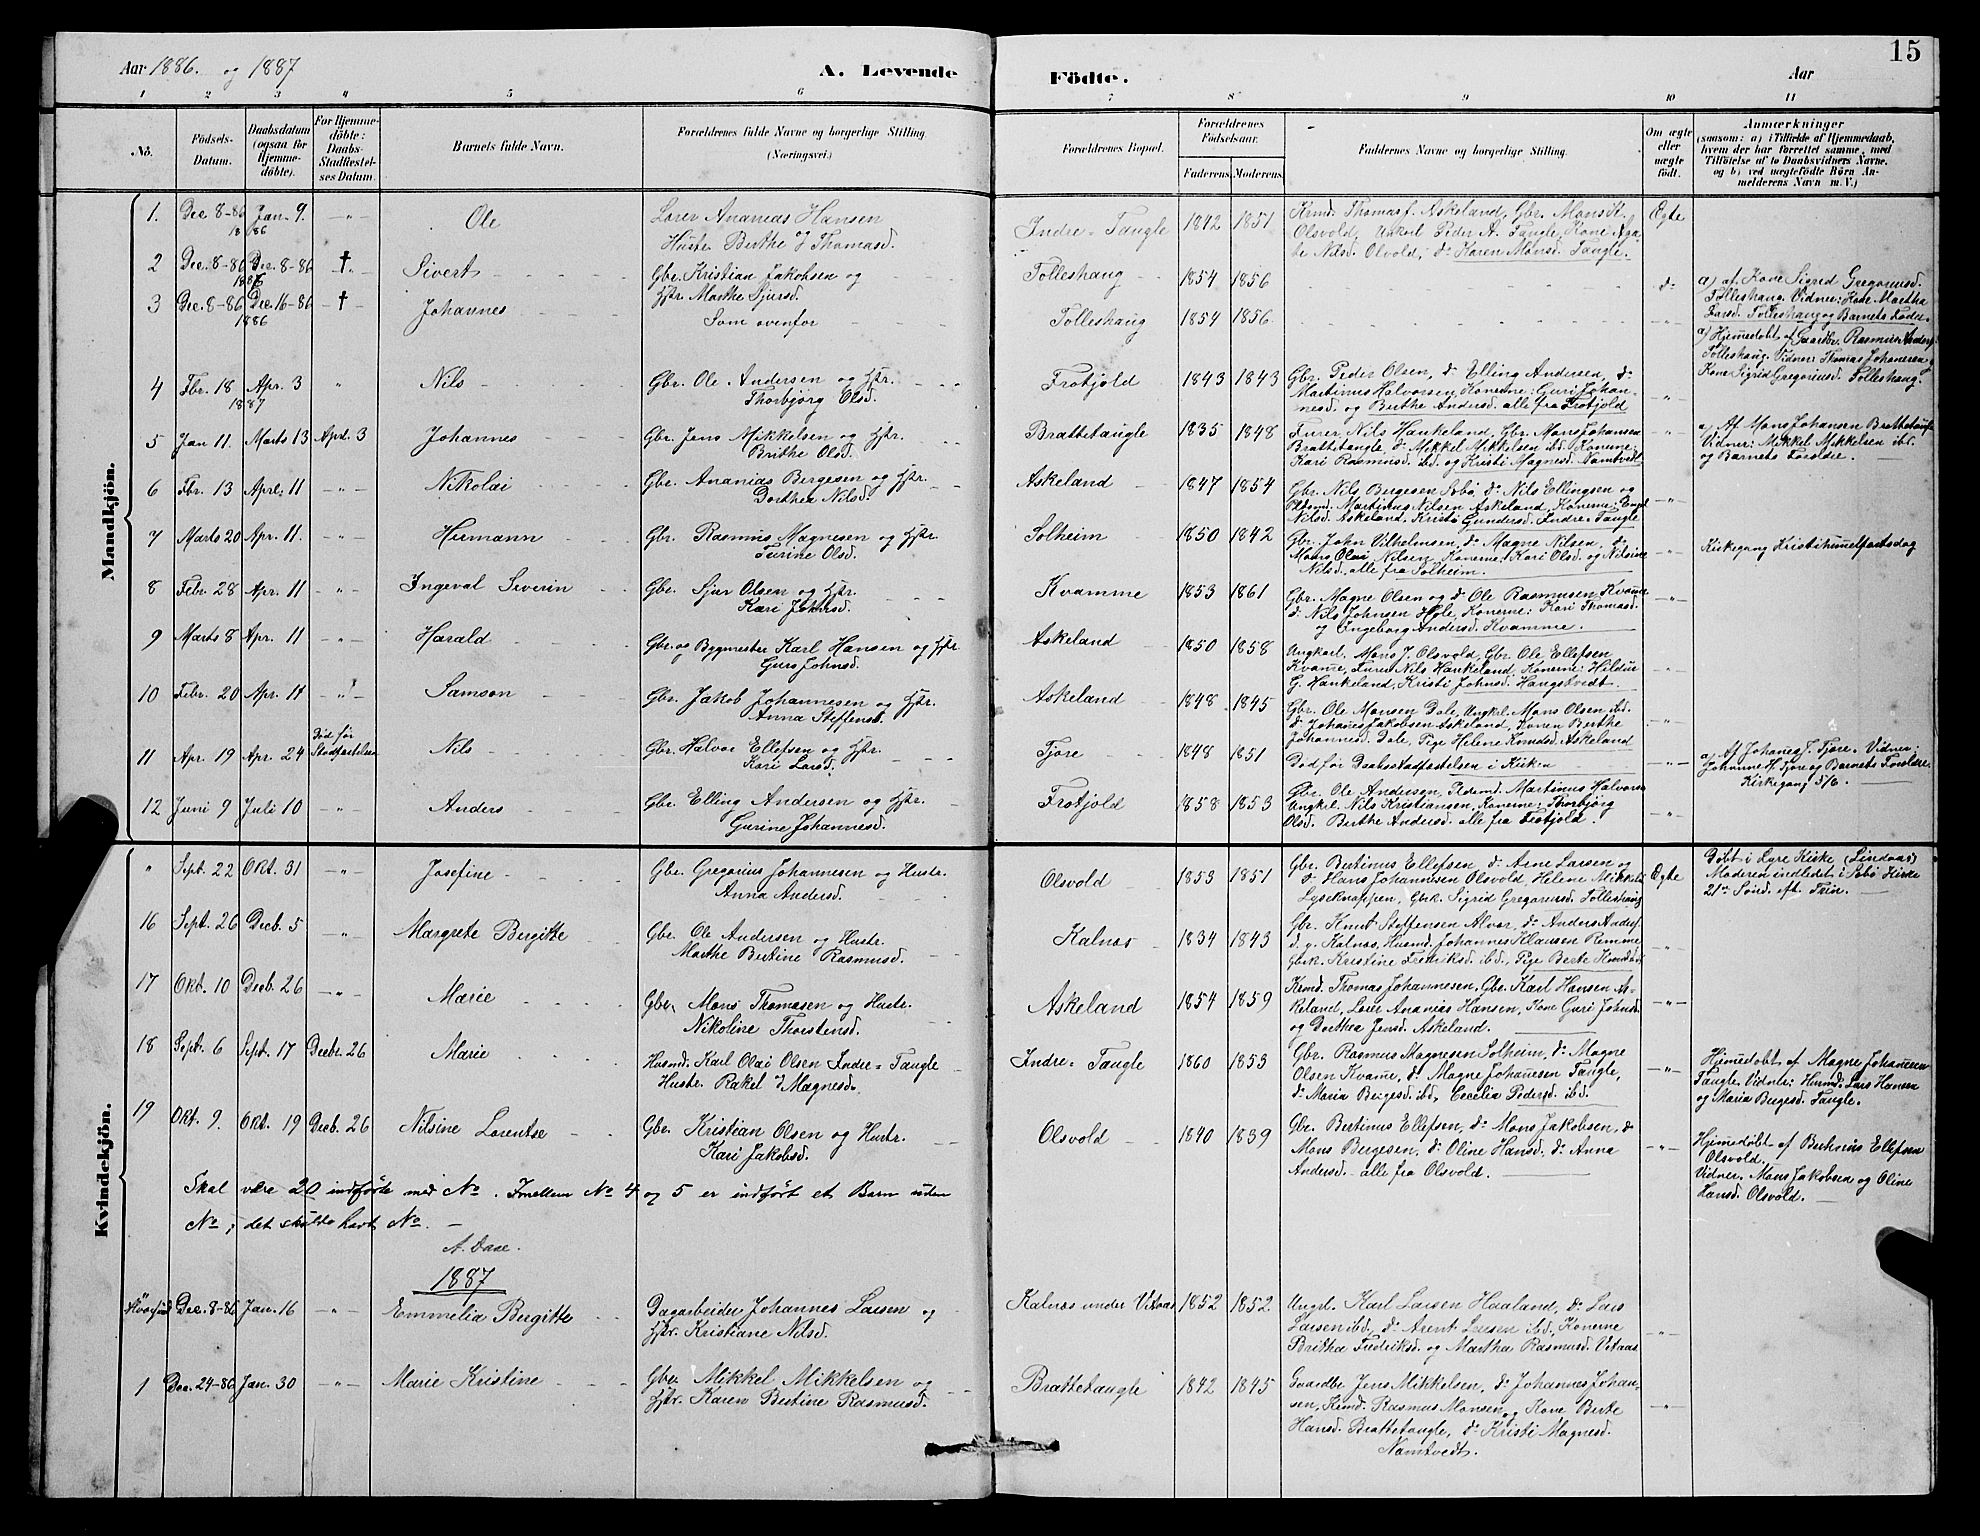 15
Aar 1886. og 1887
A. Levende
Födte.
Aar
1 2 3 4 5 6 7 8 9 10 11
No.
Födsels-
Datum.
Daabsdatum
(ogsaa for
Hjemme-
döbte).
For Hjemme-
döbte:
Daabs-
Stadfæstel-
ses Datum.
Barnets fulde Navn.
Forældrenes fulde Navne og borgerlige Stilling.
(Næringsvei.)
Forældrenes Bopæl.
Forældrenes
Födselsaar.
Faderens. Moderens.
Faddernes Navne og borgerlige Stilling.
Om ægte
eller
uægte
födt.
Anmærkninger
(saasom: a) i Tilfælde af Hjemmedaab,
hvem der har forrettet samme, med
Tilföielse af to Daabsvidners Navne,
og b) ved uægtefödte Börn An-
melderens Navn m. V.)
Mandkjön.
1. Dec 8-86 Jan. 9. -"- Ole Lærer Ananias Hansen Indre-Taugle 1842 1851 Krmd. Thomas J. Askeland, Gbr. Mons K. Ægte
1886 Hustr. Berthe J Thomasd. Olsvold, Unkarl Peder A. Taugle, Kone Aga-
te Nilsd. Olvold, do Karen Monsd. Taugle.
2 Dec. 8-86 Dec. 8-86 † Sivert Gbr. Kristian Jakobsen og Tolleshaug 1854 1856 do a) af Kone Sigrid Gregoriusd.
Hstr. Marthe Sjursd. Tolleshaug. Vidner: Kone Martha
3 Dec. 8-86 Dec. 16-86 -†- Johannes Som ovenfor Tolleshaug 1854 1856 -"- Larsd. Tolleshaug og Barnets Fader.
1886 a) Hjemedøbt af Gaardbr. Rasmus Anders.
Tolleshaug. Vidner: Thomas Johanesen og
Kone Sigrid Gregoriusd. Tolleshaug.
4 Fbr. 18 Apr. 3 " Nils Gbr. Ole Andersen og Hstr. Frotjold 1843 1843 Gbr. Peder Olsen, do Elling Andersen, do
1887 Thorbjørg Olsd. Martinus Halvorsen Konerne: Guri Johan-
nesd. og Berthe Andersd. alle fra Frotjold -"-
5 Jan 11. Marts 13 Apr. 3 Johannes Gbr. Jens Mikkelsen og Hstr. Brattetaugle 1835 1848 Furer Nils Hankeland, Gbr. Mons Johansen -"- a) Af Mons Johansen Brattetaugle
Brithe Olsd. Brattetaugle, do Mikkel Mikkelsen ibd. Konerne: Vidner: Mikkel Mikkelsen ibd.
Kari Rasmusd. ibd. og Kristi Magnesd. Namtvedt og Barnets Forældre.
6 Fbr. 13 Apr. 11 -"- Nikolai Gbr. Ananias Bergesen og Hstr. Askeland 1847 1854 Gbr. Nils Bergesen Sæbø, do Nils Ellingsen og -"-
Dorthea Nilsd. Martinus Nilsen Askeland, Konerne:
Nilsd. Askeland, Kristi Gundersd. Indre-Taugle
7 Marts 20 Apr. 11. -"- Hermann Gbr. Rasmus Magnesen og Hstr. Solheim 1850 1842 Gbr. John Vilhelmsen, do Magne Nilsen, do -"- Kirkegang Kristihimelfartsdag
Turine Olsd. Mons Olai Nilsen, Konerne: Kari Olsd. og Nilsine
Nilsd. alle fra Solheim.
8 Febr. 28 Apr. 11 -"- Ingeval Severin Gbr. Sjur Olsen og Hstr. Kvamme 1853 1861 Gbr. Magne Olsen og do Ole Rasmusen Kvamme -"-
Kari Johnsd. do Nils Johnsen Hole, Konerne: Kari Thomasd.
og Ingeborg Andersd. Kvamme.
9 Marts 8 Apr. 11 -"- Harald Gbr. og Bygmester Karl Hansen og Hstr Askeland 1850 1858 Ungkarl. Mons J. Olsvold, Gbr. Ole Ellefsen -"-
Guri Johnsd. Kvame, Furer Nils Hankeland, Konerne: Hildur
G. Hankeland, Kristi Johnsd. Haugstvedt.
10 Febr. 20 Apr. 11 -"- Samson Gbr. Jakob Johannesen og Hstr. Askeland 1848 1845 Gbr. Ole Monsen Dale, Ungkl. Mons Olsen ibd. -"-
Anna Steffensd. do Johanes Jakobsen Askeland, Konen Berthe
Johannesd. Dale, Pige Helene Knudsd. Askeland
11 Apr. 19 Apr. 24 Død før Stadfæstelsen Nils Gbr. Halvor Ellefsen og Hstr. Fjøre 1848 1851 Død før Daabsstadfæstelsen i Kirken -"- a) Af Johanes J. Fjøre. Vidner:
Kari Larsd. Johanne H. Fjøre og Barnets Forældre.
Kirkegang 5/6.
12 Juni 9 Juli 10 -"- Anders Gbr. Elling Andersen og Hstr. Frotjold 1858 1853 Gbr. Ole Andersen, Martinus Halvorsen
Gurine Johannesd. Ungkl. Nils Kristiansen, Konerne: Thorbjørg
Olsd. Berthe Andersd. alle fra Frotjold. -"-
Kvindekjön.
" Sept. 22 Okt. 31 -"- Josefine Gbr. Gregorius Johannesen og Hustr. Olsvold 1853 1851 Gbr. Bertinus Ellefsen, do Arne Larsen og Ægte Døbt i Lyre Kirke (Lindaas)
Anna Andersd. do Hans Johannesen Olsvold, Helene Mikkelsd. Moderen indledet i Sæbø Kirke
Lyseknappen, Gbrk. Sigrid Gregoriusd. Tolleshaug 21de Sønd. eft. Trin.
16 Sept. 26 Decb. 5 -"- Margrete Bergitte Gbr. Ole Andersen og Hustr. Kalnes 1834 1843 Gbr. Knut Steffensen Alvær, do Anders Anders. -"-
Marthe Bertine Rasmusd. d. y. Kalnes, Husmd. Johannes Klausen Remme
Gbrk. Kristine Fredriksd. ibd., Pige Berte
17 Okt. 10 Decb. 26 -"- Marie Gbr. Mons Thomasen og Hustr. Askeland 1854 1859 Krmd. Thomas Johannesen, Gbr. Karl Hansen As- -"-
Nikoline Thorstensd. keland, Lærer Ananias Hansen, Kone Guri Johnsd.
og Dorthea Jensd. Askeland.
18 Sept. 6 Sept. 17 Decbr. 26 Marie Husmd. Karl Olai Olsen Indre-Taugle Indre-Taugle 1860 1853 Gbr. Rasmus Magnesen Solheim, do Magne -"- Hjemedøbt af Magne Johannesen
Hustr. Rakel J Magnesd. Olsen Kvame, do Magne Johannesen Taugle, Taugle, Vidner: Husmd. Lars Hansen
do Maria Bergesd. ibd, Cecelia Pedersd. ibd. og Maria Bergesd. Taugle.
19 Okt. 9. Okt. 19 Decb. 26 Nilsine Lorentse Gbr. Kristian Olsen og Hustr. Olsvold 1840 1839 Gbr. Bertinus Ellefsen, do Mons Jakobsen, do -"- Hjemedøbt af Berthinus Ellefsen
Kari Jakobsd. Mons Bergesen, do Oline Hansd. do Anna Olsvold.
Andersd. - alle fra Olsvold. Vidner: Mons Jakobsen og Oline
Hansd. Olsvold.
Skal være 20 indførte med No. Imellem No 4 og 5 er indført et Barn uden
No; det skulde havt No. —
A. Daae.
1887
Dec. 8-86 Jan. 16 -"- Emmelia Bergitte Dagarbeider Johannes Larsen og Kalnes under Vitaas 1852 1852 Ungk. Karl Larsen Haaland, do Lars -"-
Hstr. Kristiane Nilsd. Larsen ibd., do Arent Larsen ibd., Konerne
Britha Fredriksd. og Martha Rasmusd. Vitaas
1 Dec. 24-86 Jan. 30 -"- Marie Kristine Gbr. Mikkel Mikkelsen og Brattetaugle 1842 1845 Gaardbr Jens Mikkelsen, do Johannes Johan- -"-
Hstr. Karen Bertine Rasmusd. sen, Krmd. Rasmus Monsen, og Kone Berte
Hansd. Brattetaugle, do Kristi Magnesd.
Namtvedt.